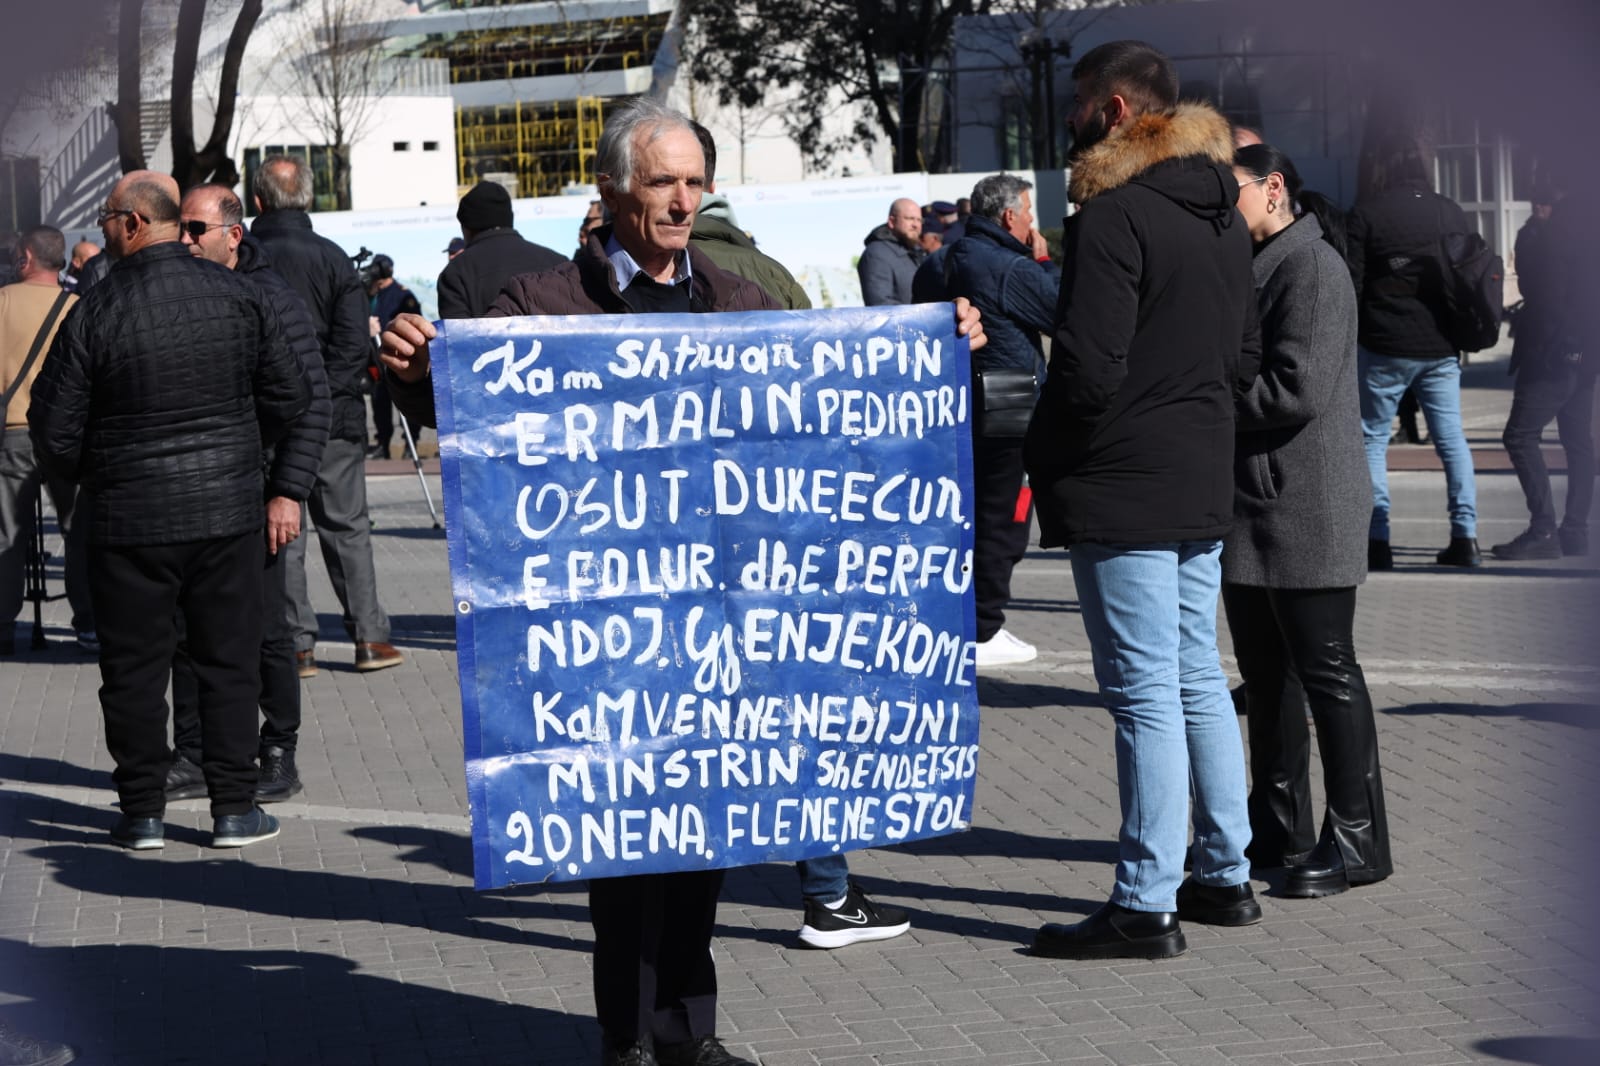 Kam Shtruar NIPIN
ERMALIN.PEDIATRI
OSUT.DUKE.ECUR.
EFOLUR.dhE.PERFU
NDOJ.GjENJE.KOME
KaM.VENNENEDIJNI
MINSTRIN ShENDETSIS
20.NENA.FLENE,NESTOL